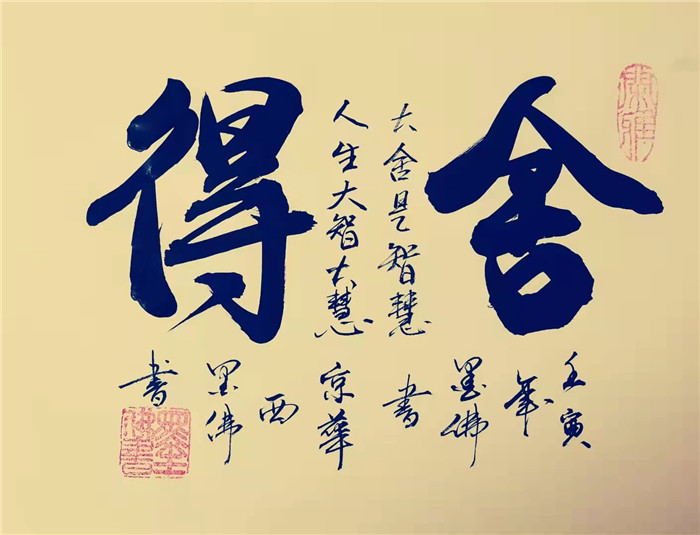 舍
大舍是智慧
人生大智大慧
得
壬寅
年
墨佛
書
京華
西
墨佛
書